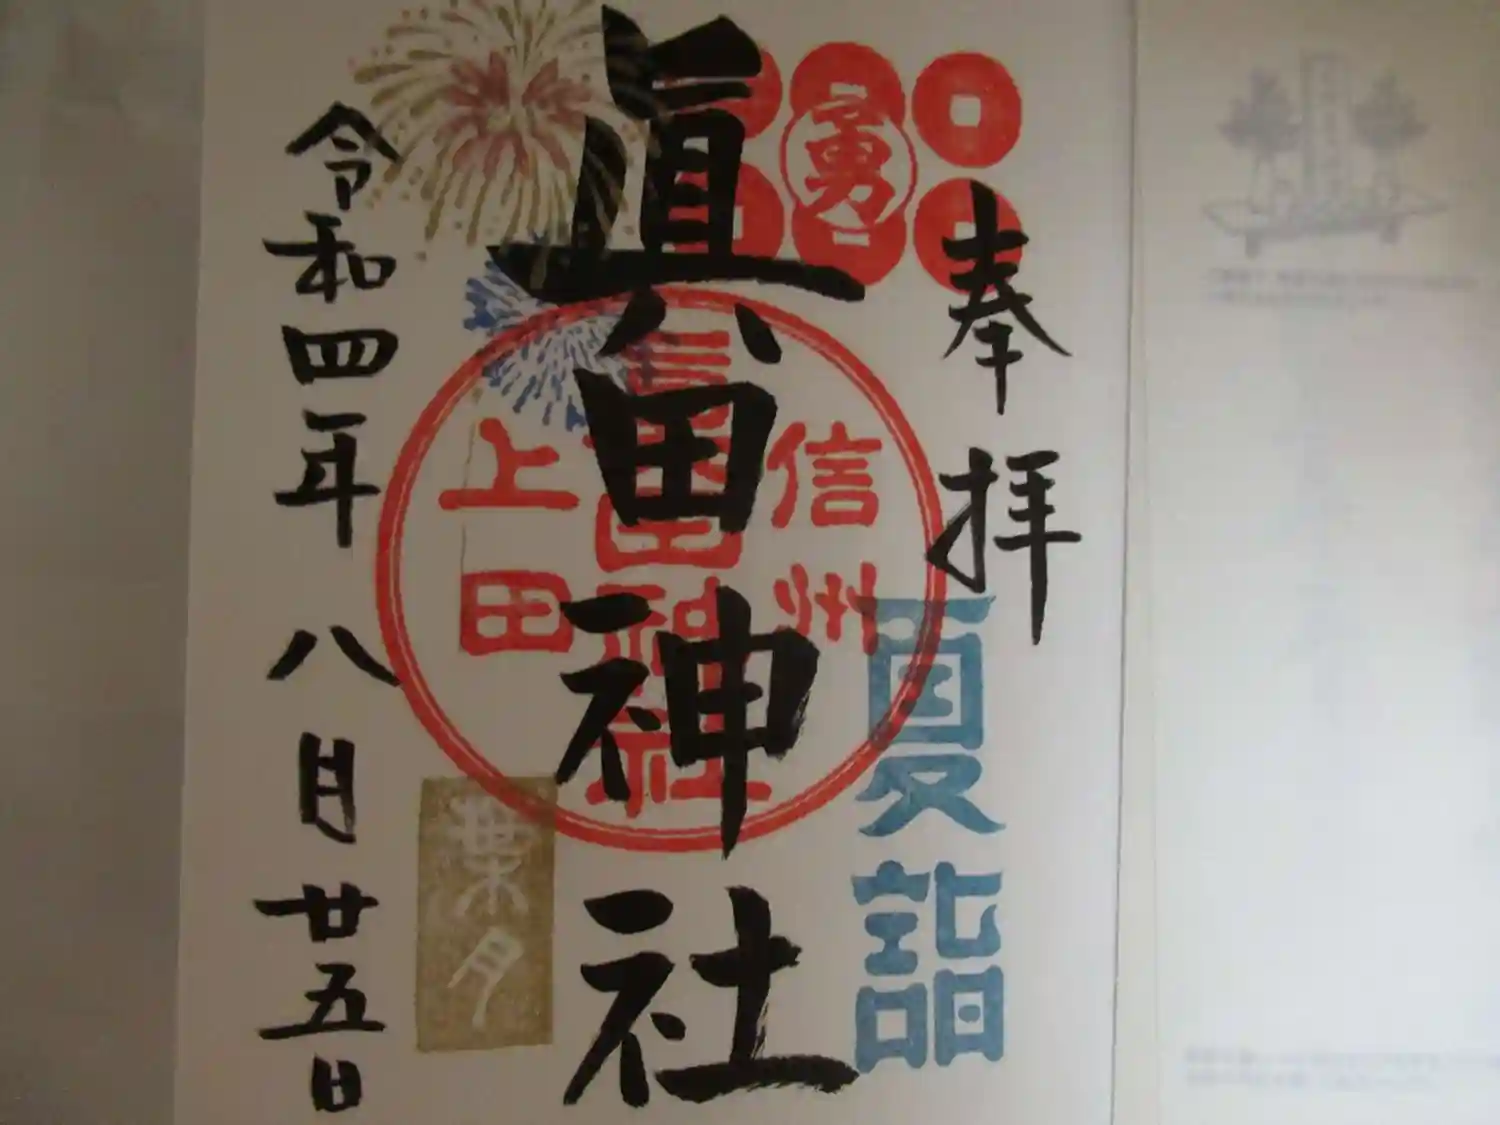 奉拝
夏詣
勇
眞田神社
信州
眞田神社
上田
葉月
令和四年八月廿五日